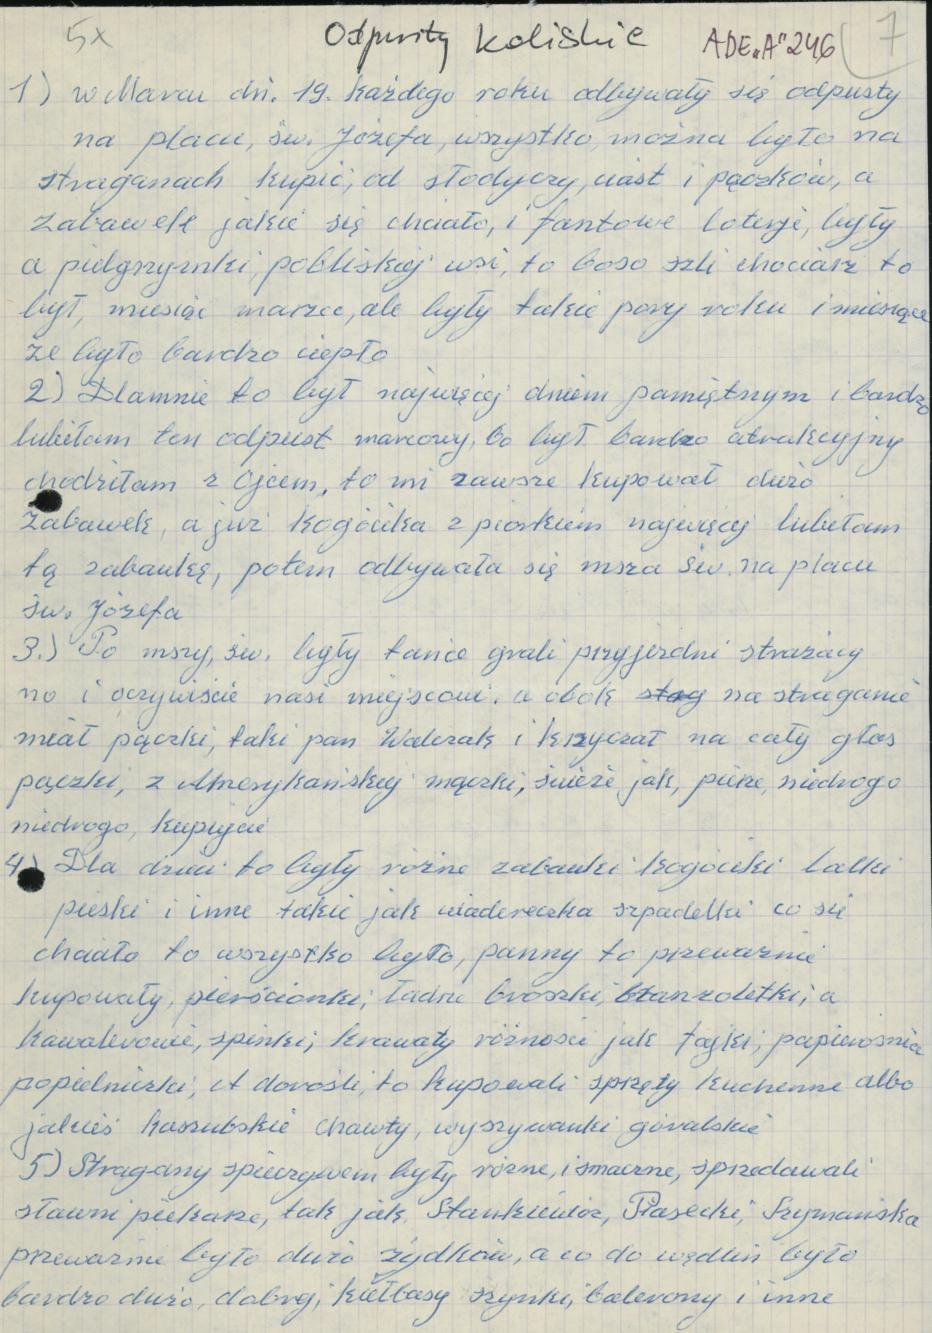 5x Odpusty Kaliskie ADE „A" 246 7
1) w Marcu dn. 19. każdego roku odbywały się odpusty
na placu, św. Józefa, wszystko, można było na
straganach kupić, od słodyczy, ciast i pączków, a
zabawek jakie się chciało, i fantowe loterje, były
a pielgrzymki, pobliskiej wsi, to boso szli chociarz to
był, miesiąc marzec, ale były takie pory roku i miesiące
że było bardzo ciepło
2) Dlamnie to był najwięcej dniem pamiętnym i bardzo
lubiełam ten odpust marcowy, bo był bardzo atrakcyjny
chodziłam z Ojcem, to mi zawsze kupował dużo
zabawek, a już kogócika z piaskiem najwięcej lubiełam
tą zabawkę, potem odbywała się msza św. na placu
św. Józefa
3.) Po mszy, św. były tańce grali przyjezdni strażacy
no i oczywiście nasi miejscowi. a obok na straganie
miał pączki, taki pan Walczak i krzyczał na cały głos
pączki, z Amerykańskiej mączki, świeże jak, pieże, niedrogo
niedrogo, kupujcie
4) Dla dzieci to były różne zabawki kogóciki lalki
pieski i inne takie jak wiadereczka szpadelki co się
chciało to wszystko było, panny to przeważnie
kupowały, pierścionki, ładne broszki, branzoletki, a
kawalerowie, spinki, krawaty różności jak fajki, papierośnice
popielniczki, A dorośli, to kupowali sprzęty kuchenne albo
jakieś kaszubskie chawty, wyszywanki góralskie
5) Stragany spieczywem były różne, i smaczne, sprzedawali
sławni piekarze, tak jak, Stankiewicz, Piasecki, Szymańska
przeważnie było dużo żydków, a co do wędlin było
bardzo dużo, dobrej, kiełbasy szynki, balerony i inne